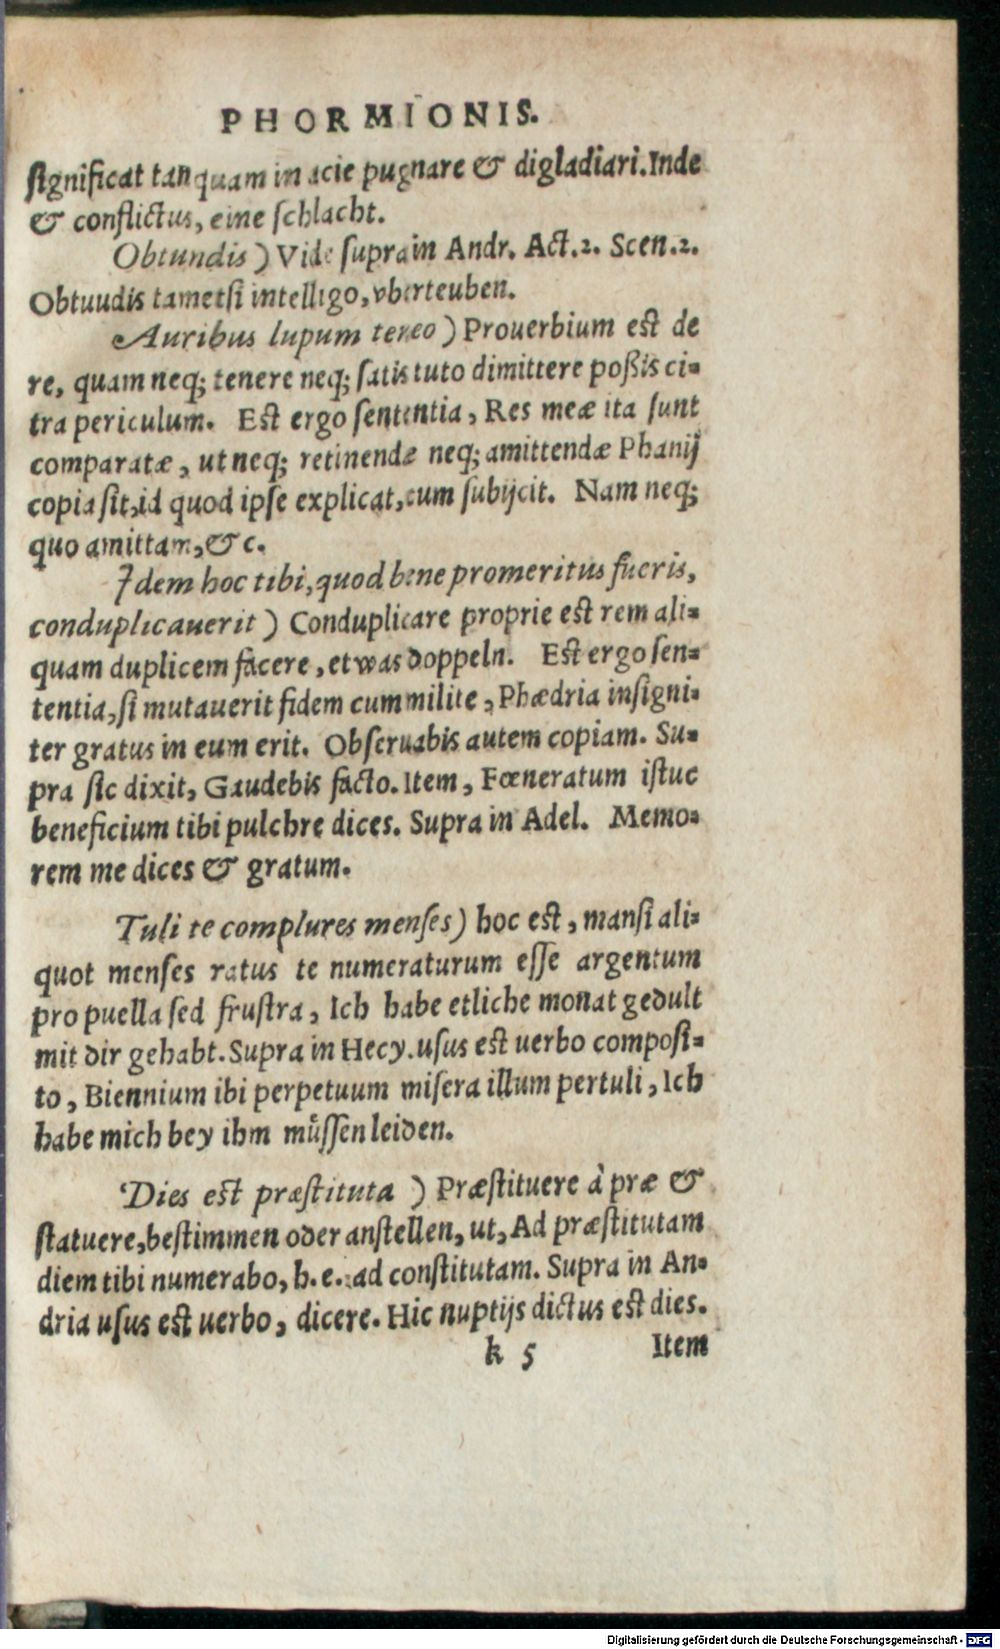 PHORMIONIS.
ſignificat tanquam in acie pugnare & digladiari. Inde
& conflictus, eine ſchlacht.
Obtundis) Vide ſupra in Andr. Act. 2. Scen. 2.
Obtuudis tametſi intelligo, vberteuben.
Auribus lupum teneo) Prouerbium est de
re, quam neq; tenere neq; ſatis tuto dimittere poßis ci=
tra periculum. Est ergo ſententia, Res meæ ita ſunt
comparatæ, ut neq; retinendæ neq; amittendæ Phanij
copia ſit, id quod ipſe explicat, cum ſubijcit. Nam neq;
quo amittam, & c.
Idem hoc tibi, quod bene promeritus fueris,
conduplicauerit) Conduplicare proprie est rem ali=
quam duplicem facere, etwas doppeln. Est ergo ſen=
tentia, ſi mutauerit fidem cum milite, Phædria inſigni=
ter gratus in eum erit. Obſeruabis autem copiam. Su=
pra ſic dixit, Gaudebis facto. Item, Fœneratum iſtuc
beneficium tibi pulchre dices. Supra in Adel. Memo=
rem me dices & gratum.
Tuli te complures menſes) hoc est, manſi ali=
quot menſes ratus te numeraturum eſſe argentum
pro puella ſed fruſtra, Ich habe etliche monat gedult
mit dir gehabt. Supra in Hecy. uſus est uerbo compoſi=
to, Biennium ibi perpetuum miſera illum pertuli, Ich
habe mich bey ihm muͤſſen leiden.
Dies est præſtituta) Præſtituere à præ &
ſtatuere, beſtimmen oder anſtellen, ut, Ad præſtitutam
diem tibi numerabo, h. e. ad conſtitutam. Supra in An=
dria uſus est uerbo, dicere. Hic nuptijs dictus est dies.
k 5 Item
Digitalisierung gefördert durch die Deutsche Forschungsgemeinschaft - DFG